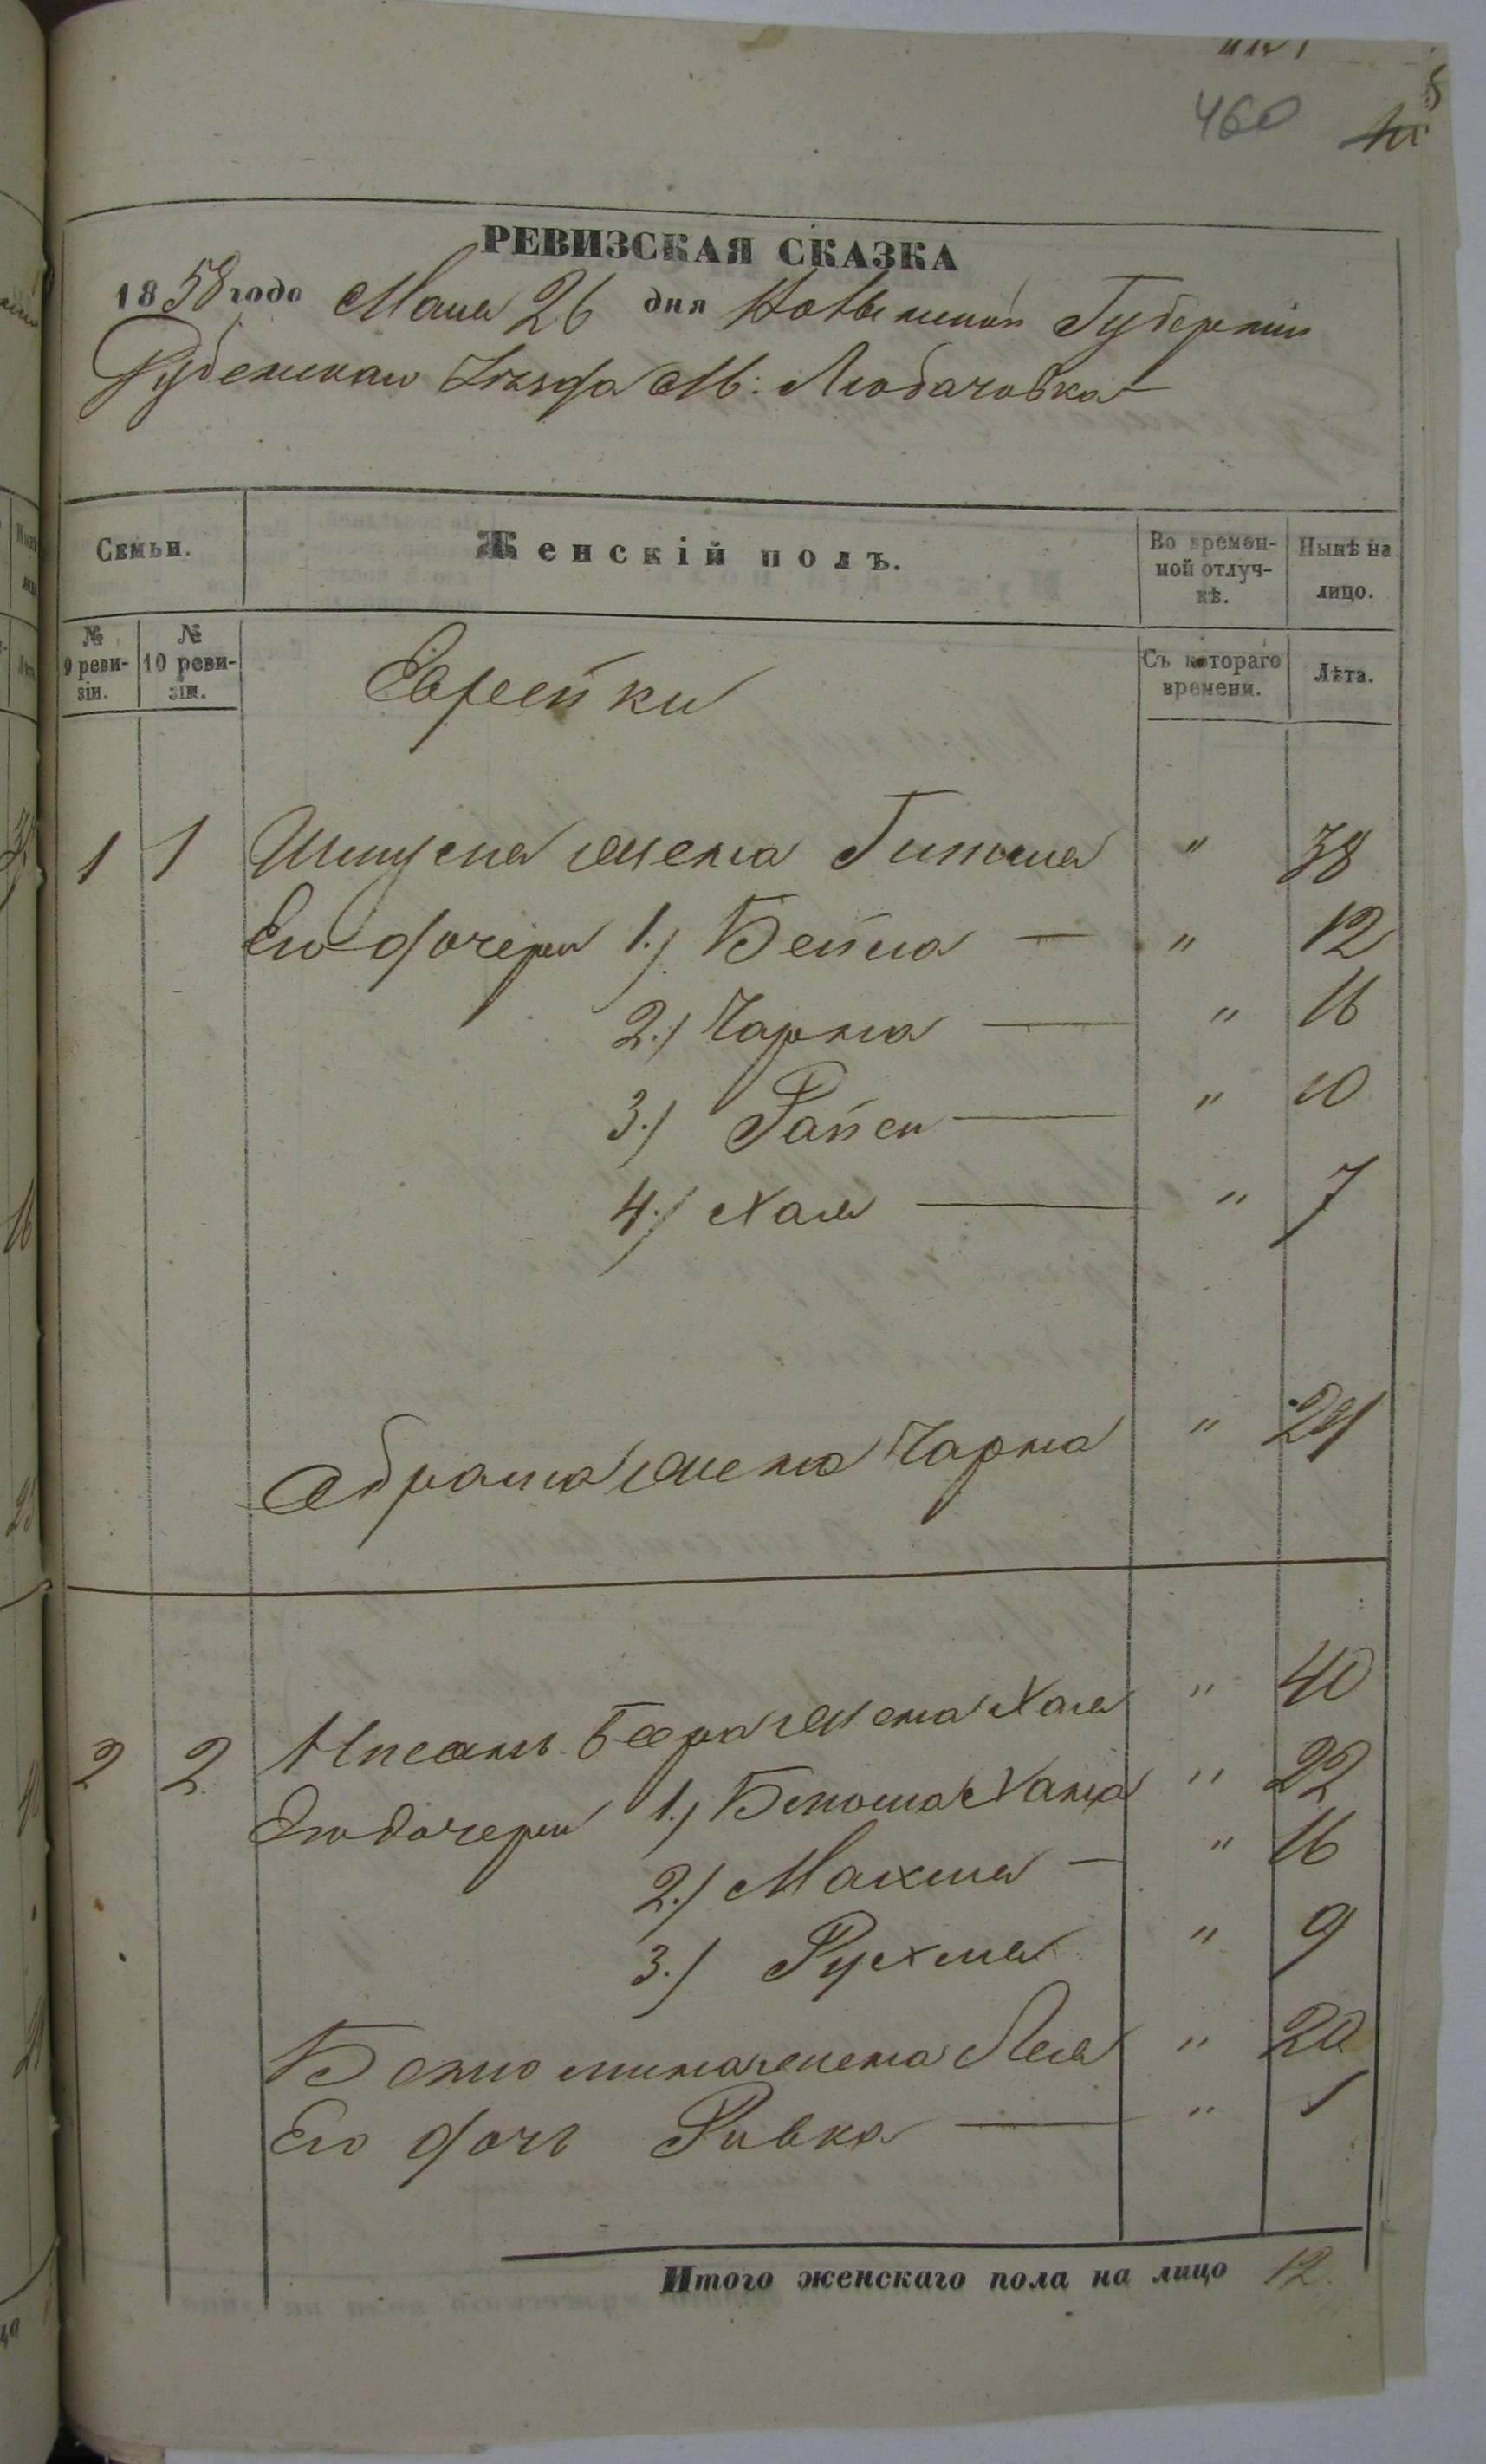 460
РЕВИЗСКАЯ СКАЗКА
1858 года Мая 26 дня Волынской Губернии
Дубенскаго Уѣзда М: Любачовка
Семьи.
Женскій полъ.
Во времен-
ной отлуч-
кѣ.
Нынѣ на
лицо.
№
9 реви-
зіи.
№
10 реви-
зіи.
Съ котораго
времени.
Лѣта.
Еврейки
1 1 жена Гитля " 38
Его дочери 1.) Бейла — " 12
2.) Чарна — " 16
3.) Райси — " 10
4.) Хая — " 7
Абрама жена Чарна " 24
2 2 Беера жена Хая " 40
Его дочери 1.) Хана " 22
2.) Махля — " 16
3.) Рухля " 9
жена Лея " 20
Его дочь Ривка — " 1
Итого женскаго пола на лицо 12